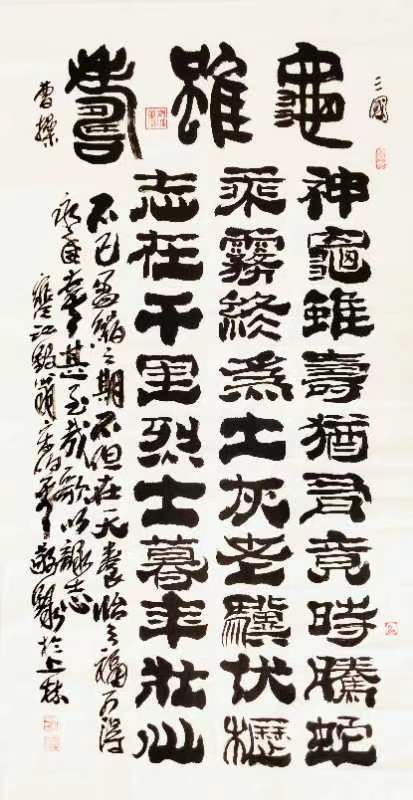 三國
龜雖壽
曹操
神龜雖壽猶有竟時騰蛇
乘霧終為土灰老驥伏櫪
志在千里烈士暮年壯心
不已盈縮之期不但在天養怡之福可得
永年幸甚至哉歌以詠志
於上林